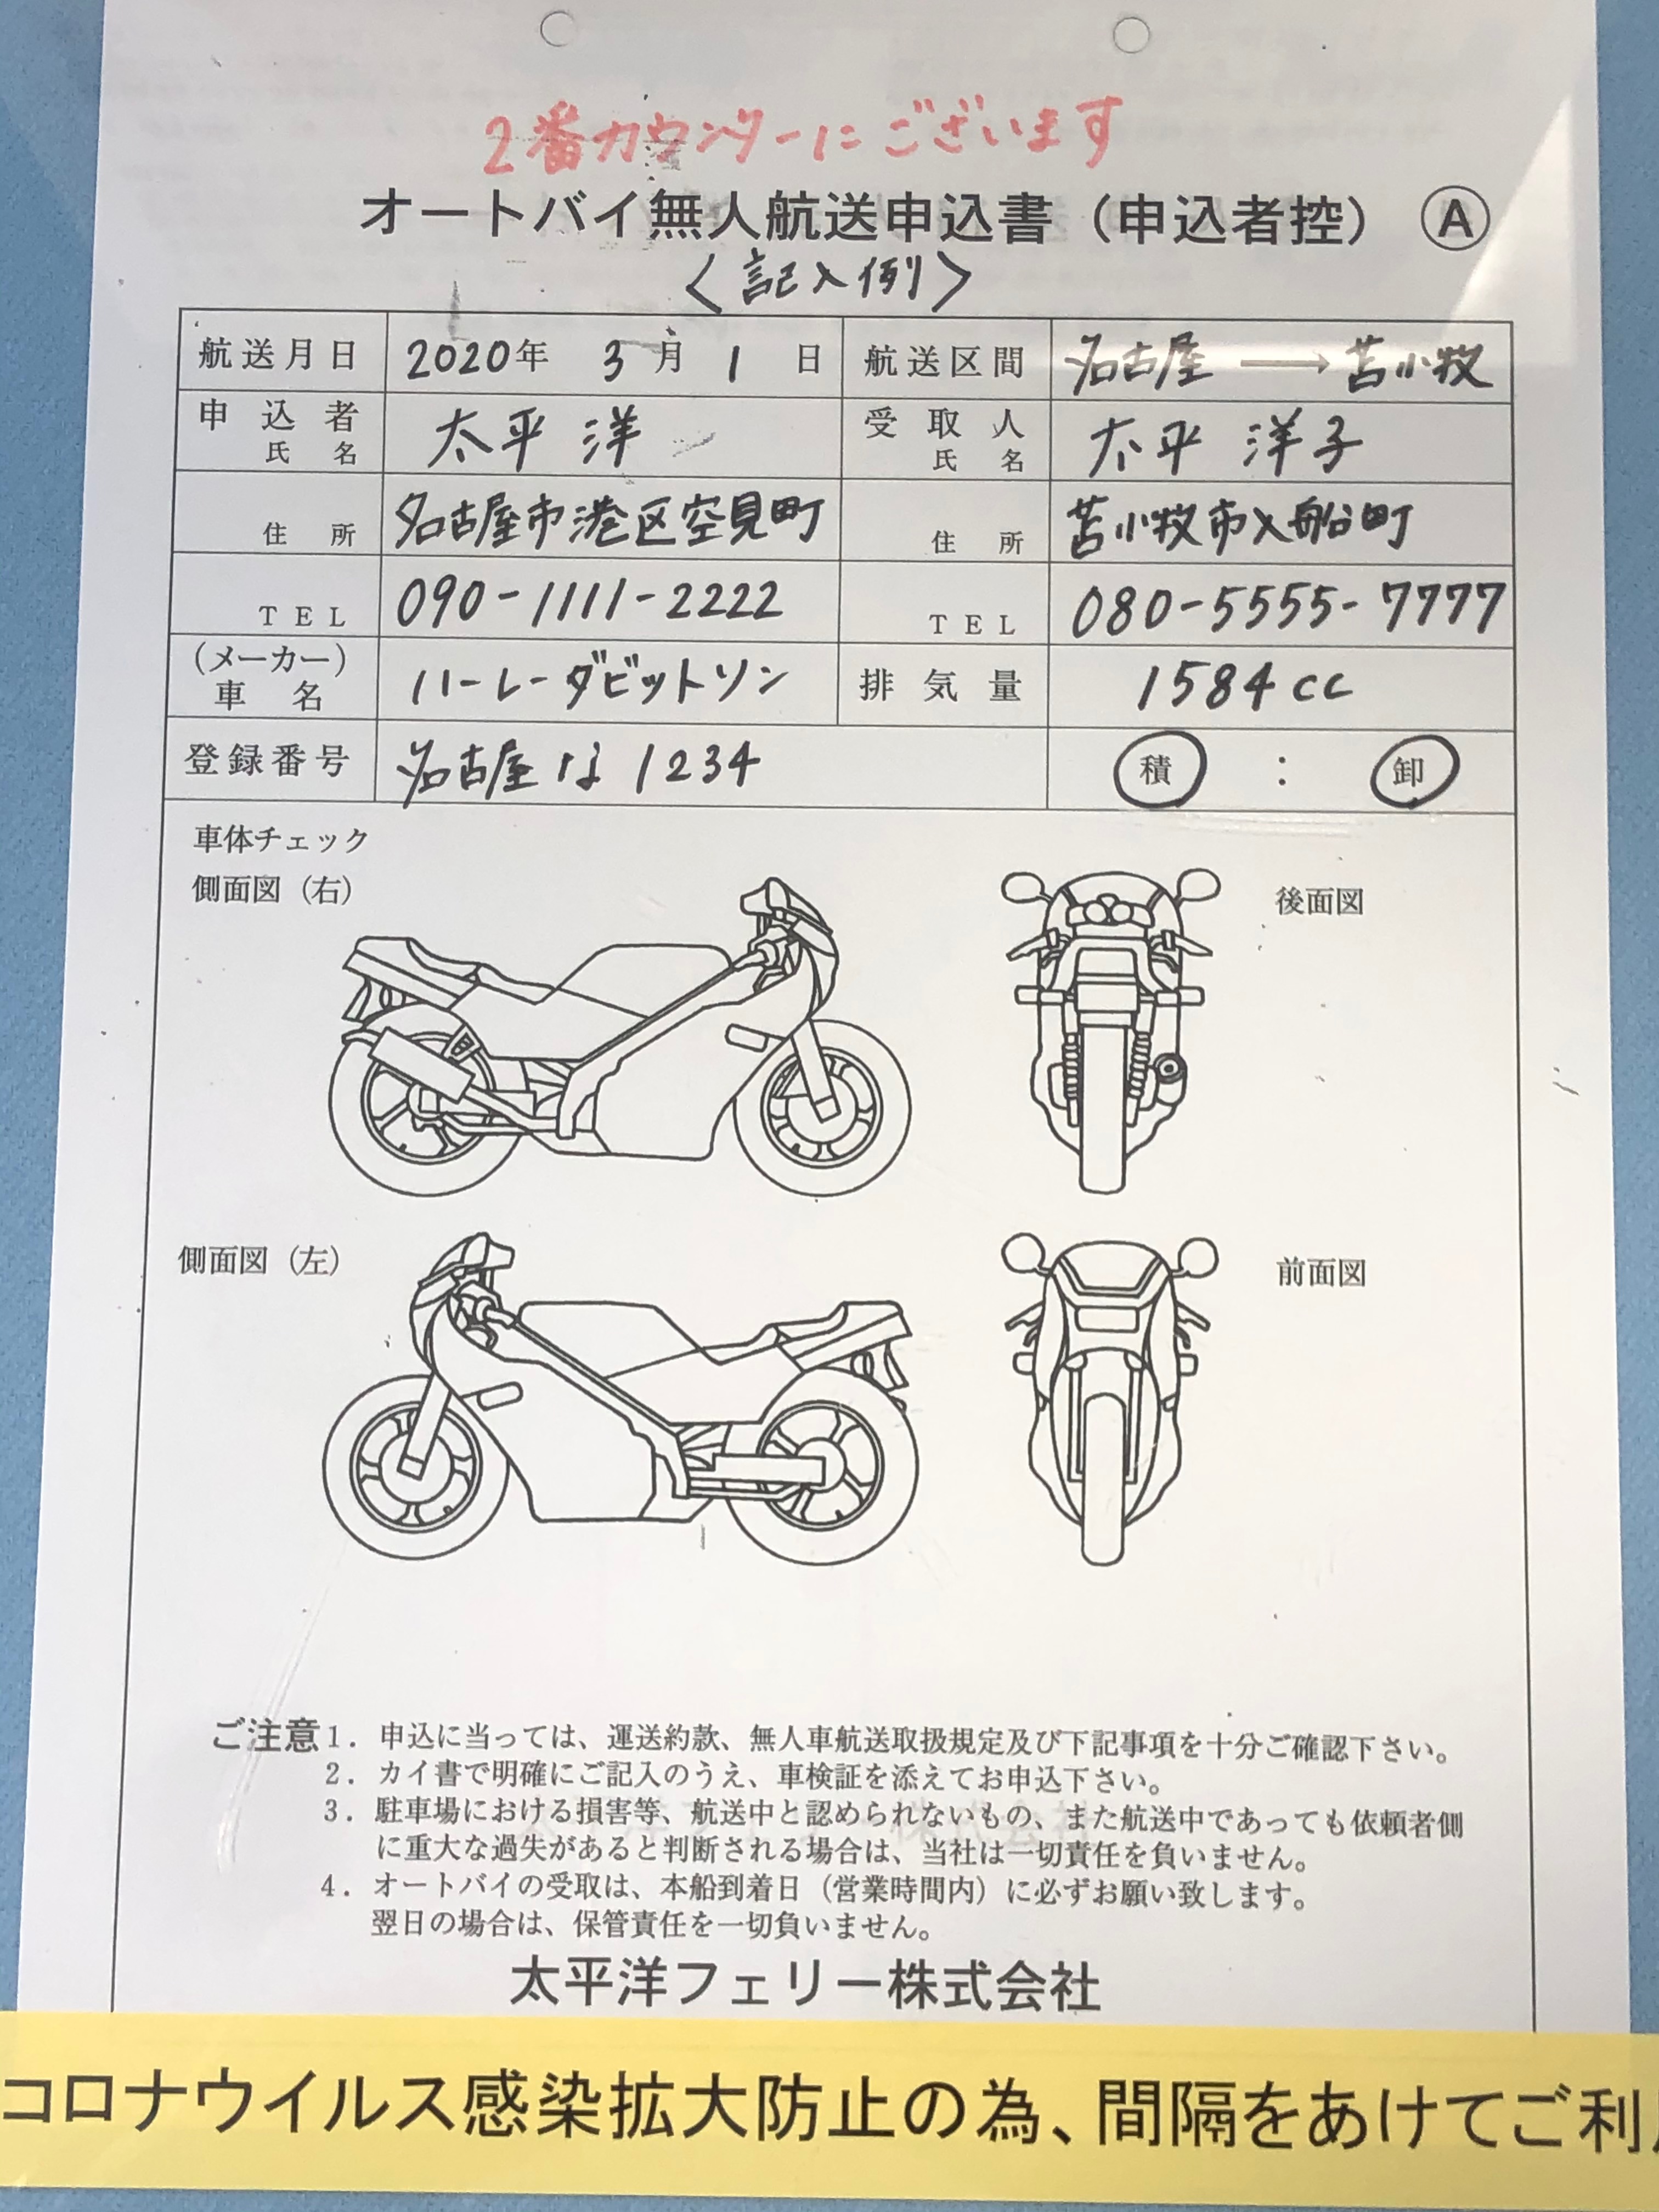 2番カウンターにございます
オートバイ無人航送申込書（申込者控） Ⓐ
〈記入例〉
航送月日 2020年 3月 1日 航送区間 名古屋 → 苫小牧
申込者氏名 太平 洋 受取人氏名 太平 洋子
住所 名古屋市港区空見町 住所 苫小牧市入船町
TEL 090-1111-2222 TEL 080-5555-7777
（メーカー）車名 ハーレーダビットソン 排気量 1584cc
登録番号 名古屋 な 1234 積 : 卸
車体チェック
側面図（右） 後面図
側面図（左） 前面図
ご注意 1．申込に当っては、運送約款、無人車航送取扱規定及び下記事項を十分ご確認下さい。
2．カイ書で明確にご記入のうえ、車検証を添えてお申込下さい。
3．駐車場における損害等、航送中と認められないもの、また航送中であっても依頼者側
に重大な過失があると判断される場合は、当社は一切責任を負いません。
4．オートバイの受取は、本船到着日（営業時間内）に必ずお願い致します。
翌日の場合は、保管責任を一切負いません。
太平洋フェリー株式会社
コロナウイルス感染拡大防止の為、間隔をあけてご利